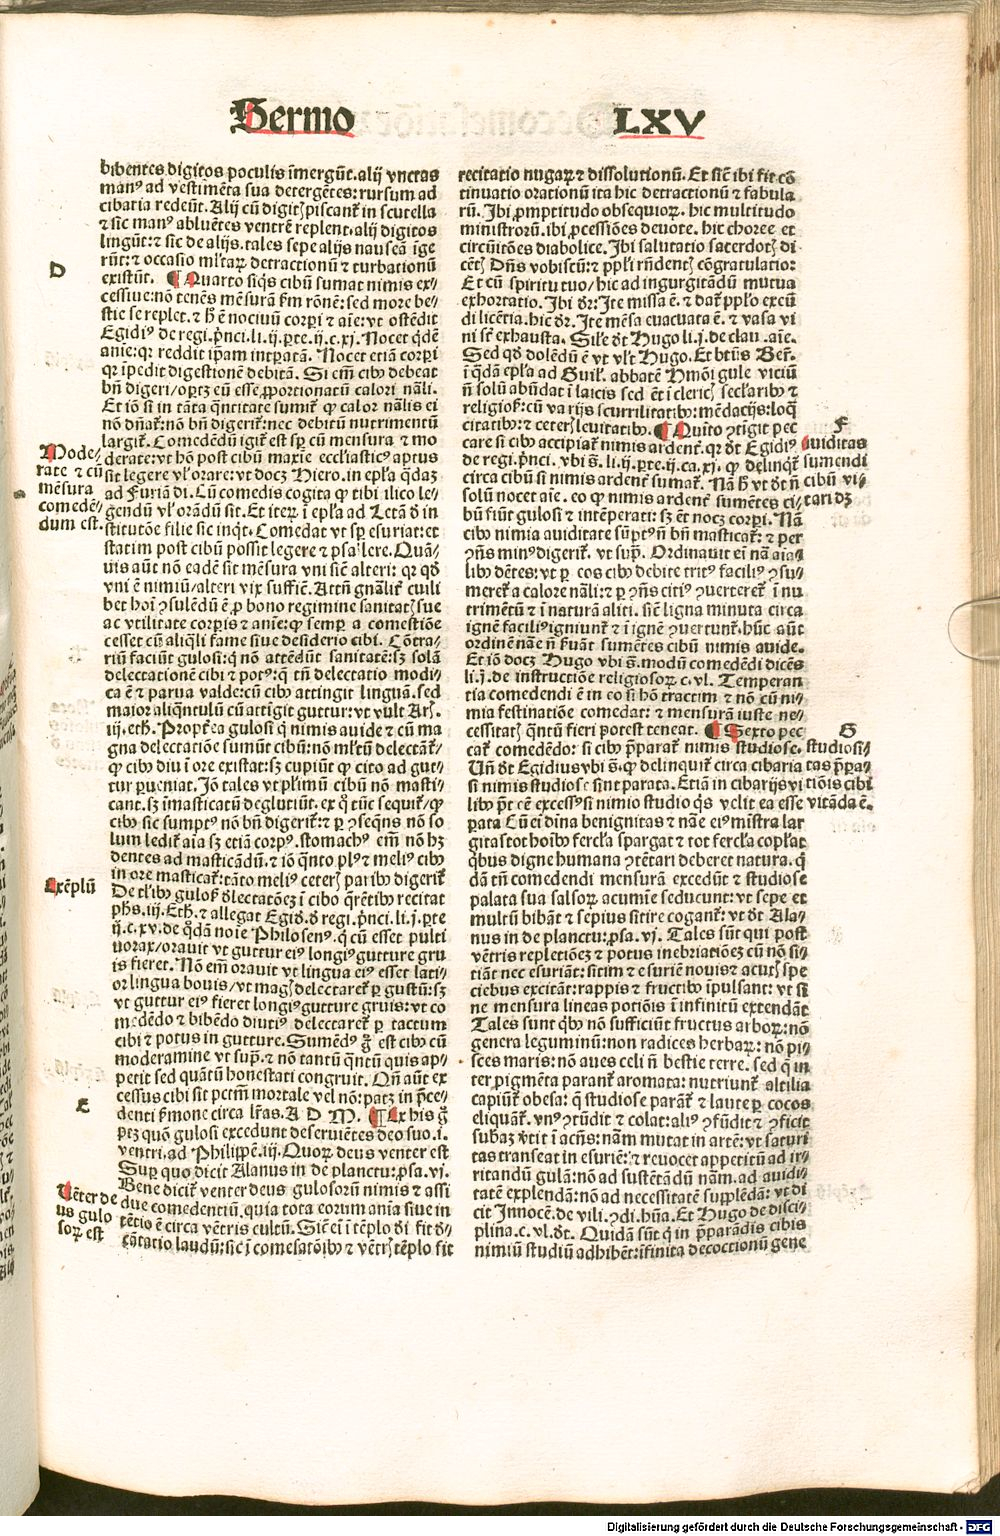 Sermo LXV
bibentes digitos poculis īmergūt. alij vnctas
manꝰ ad vestimēta sua detergētes: rursum ad
cibaria redeūt. Alij cū digitꝭ piscant᷑ in scutella
⁊ sic manꝰ abluētes ventrē replent. alij digitos
lingūt: ⁊ sic de alijs. tales sepe alijs nauseā īge
rūt: ⁊ occasio ml'taꝝ detractionū ⁊ turbationū
D
existūt. ¶ Quarto siq̄s cibū sumat nimis ex⸗
cessiue: nō tenēs mēsurā ẜm rōnē: sed more be⸗
stie se replet. ⁊ h̄ ē nociuū corꝑi ⁊ aīe: vt ostēdit
Egidiꝰ de regi. pͥnci. li. ij. ꝑte. ij. c. xj. Nocet qͥdē
anie: qꝛ reddit ip̄am intꝑatā. Nocet etiā corꝑi
qꝛ īpedit digestionē debitā. Si em̄ cibꝰ debeat
bn̄ digeri/oꝑtꝫ eū esse ꝓportionatū calori nāli.
Et iō si in tāta q̄ntitate sumit᷑ ꝙ calor nālis ei
nō dn̄at᷑: nō bn̄ digerit᷑: nec debitū nutrimentū
largit᷑. Comedēdū igit᷑ est sꝑ cū mensura ⁊ mo
Mode⸗
rate ⁊ cū
mēsura
comedē⸗
dum est.
derate: vt hō post cibū maxie ecclīasticꝰ aptus
sit legere vl' orare: vt docꝫ Hiero. in epl'a q̄daꝫ
ad Furiā di. Cū comedis cogita ꝙ tibi ilico le⸗
gendū vl' orādū sit. Et iteꝝ ī epl'a ad Letā ð in
stitutōe filie sic inqͥt. Comedat vt sꝑ esuriat: et
statim post cibū possit legere ⁊ psallere. Quā⸗
uis aūt nō eadē sit mēsura vni sicͥ alteri: qꝛ qð
vni ē nimiū/alteri vix suffic̄. Attn̄ gn̄alit᷑ cuili
bet hoī ꝯsulēdū ē ꝓ bono regimine sanitatꝭ sue
ac vtilitate corꝑis ⁊ anie: ꝙ semꝑ a comestiōe
cesset cū aliq̄li fame siue desiderio cibi. Cōtra⸗
riū faciūt gulosi: q̇ nō attēdūt sanitatē: sꝫ solā
delectationē cibi ⁊ potꝰ: q̄ tn̄ delectatio modi⸗
ca ē ⁊ parua valde: cū cibꝰ attingit linguā. sed
maior aliqn̄tulū cū attīgit guttur: vt vult Arꝭ.
iij. eth. Propt᷑ea gulosi q̇ nimis auide ⁊ cū ma
gna delectatiōe sumūt cibū: nō ml'tū delectāt᷑/
ꝙ cibꝰ diu ī ore existat: sꝫ cupiūt ꝙ cito ad gut⸗
tur ꝑueniat. Iō tales vt pl'imū cibū nō masti⸗
cant. sꝫ īmasticatū deglutiūt. ex q̇ tūc sequit᷑/ꝙ
cibꝰ sic sumptꝰ nō bn̄ digerit᷑: ⁊ ꝑ ꝯseq̄ns nō so
lum ledit᷑ aīa sꝫ etiā corpꝰ. stomachꝰ em̄ nō hꝫ
dentes ad masticādū. ⁊ iō q̄nto plꝰ ⁊ meliꝰ cibꝰ
Exēplū
in ore masticat᷑: tāto meliꝰ ceterꝭ paribꝰ digerit᷑
De tl'ibꝰ gulos᷑ ðlectatōeꝫ ī cibo q̄rētibꝰ recitat
ph̄s. iij. Eth. ⁊ allegat Egiꝺ. ð regi. pͥnci. li. j. ꝑte
ij. c. xv. de qͦdā noīe Philosenꝰ. q̇ cū esset pulti
uorax/orauit vt guttur eiꝰ longiꝰ gutture gru
is fieret. Nō em̄ orauit vt lingua eiꝰ esset lati⸗
or lingua bouis/vt magꝭ delectaret᷑ ꝑ gustū: sꝫ
vt guttur eiꝰ fieret longiꝰ gutture gruis: vt co
medēdo ⁊ bibēdo diutiꝰ delectaret᷑ ꝑ tactum
cibi ⁊ potus in gutture. Sumēdꝰ g̊ est cibꝰ cū
moderamine vt supͣ. ⁊ nō tantū q̄ntū quis ap⸗
petit sed quātū honestati congruit. Qn̄ aūt ex
cessus cibi sit pctm̄ mortale vel nō: patꝫ in p̄ce⸗
E
denti ẜmone circa lr̄as. A D M. ¶ Ex his g̊
ptꝫ quō gulosi excedunt deseruiētes deo suo. i.
ventri. ad Philippē. iij. Quoꝝ deus venter est
Suꝑ quo dicit Alanus in de planctu: ꝓsa. vj.
Uēter de
us gulo
soꝝ est
Bene dicit᷑ venter deus gulosorū nimis ⁊ assi
due comedentiū. quia tota eorum anīa siue in
tētio ē circa vētris cultū. Sic̄ eī ī tēplo dī fit ð⸗
cātatio laudū: sic ī comesatōibꝰ ⁊ vētrꝭ tēplo fit
recitatio nugaꝝ ⁊ dissolutionū. Et sic̄ ibi fit cō
tinuatio orationū ita hic detractionū ⁊ fabula
rū. Ibi ꝓmptitudo obsequioꝝ. hic multitudo
ministrorū. ibi ꝓcessiōes deuote. hic choree et
circūitōes diabolice. Ibi salutatio sacerdotꝭ di⸗
cētꝭ Dn̄s vobiscū: ⁊ ppl'i rn̄dentꝭ cōgratulatio:
Et cū spiritu tuo/hic ad ingurgitādū mutua
exhortatio. Ibi dr̄: Ite missa ē. ⁊ dat᷑ ppl'o excū
di licētia. hic dr̄. Ite mēsa euacuata ē. ⁊ vasa vi
ni sͭ exhausta. Sil'r dt̄ Hugo li. j. de clau. aīe.
Sed qð dolēdū ē vt vl't Hugo. Et btūs Ber̄.
ī q̄dā epl'a ad Guil'. abbatē Hmōi gule viciū
n̄ solū abūdat ī laicis sed et̄ ī clericꝭ secl'aribꝰ ⁊
religios᷑: cū varijs scurrilitatibꝰ: mēdacijs: loq̄
F
citatibꝰ: ⁊ ceterꝭ leuitatibꝰ. ¶ Quīto ꝯtigit pec
Auiditas
sumendi
cibū vi⸗
tari dꝫ
care si cibꝰ accipiat᷑ nimis ardent᷑. qꝛ dt̄ Egidiꝰ
de regi. pͥnci. vbi s̄. li. ij. ꝑte. ij. ca. xj. ꝙ delinqͥt᷑
circa cibū si nimis ardent᷑ sumat᷑. Nā h̄ vt dt̄ n̄
solū nocet aīe. eo ꝙ nimis ardent᷑ sumētes ci⸗
bū fiūt gulosi ⁊ intēperati: sꝫ et̄ nocꝫ corꝑi. Nā
cibꝰ nimia auiditate sūptꝰ n̄ bn̄ masticat᷑: ⁊ per
ꝯn̄s minꝰ digerit᷑. vt supͣ. Ordinauit eī nā aīa⸗
libꝰ dētes: vt ꝑ eos cibꝰ debite tritꝰ faciliꝰ ꝯsu⸗
meret᷑ a calore nāli: ⁊ ꝑ ꝯn̄s citiꝰ ꝯuerteret᷑ ī nu
trimētū ⁊ ī naturā aliti. sic̄ ligna minuta circa
ignē faciliꝰ igniunt᷑ ⁊ ī ignē ꝯuertunt᷑. hūc aūt
ordinē nāe n̄ ẜuāt sumētes cibū nimis auide.
Et iō docꝫ Hugo vbi s̄. modū comedēdi dicēs
li. j. de instructiōe religiosoꝝ c. vl. Temperan
tia comedendi ē in eo si hō tractim ⁊ nō cū ni⸗
mia festinatiōe comedat: ⁊ mensurā iuste ne⸗
G
cessitatꝭ q̄ntū fieri potest teneat. ¶ Sexto pec
studiosi⸗
tas p̄ꝑa⸗
tiōis cibi
vitāda ē.
cat᷑ comedēdo: si cibꝰ p̄parat᷑ nimis studiose.
Un̄ dt̄ Egidius vbi s̄. ꝙ delinquit᷑ circa cibaria
si nimis studiose sint parata. Etiā in cibarijs vi
libꝰ pt̄ eē excessꝰ si nimio studio q̇s velit ea esse
ꝑata Cū eī dīna benignitas ⁊ nāe eiꝰ mīstra lar
gitas tot hoībꝰ fercl'a spargat ⁊ tot fercl'a copl'at
q̄bus digne humana ꝯtētari deberet natura. q̇
dā tn̄ comedendi mensurā excedūt ⁊ studiose
palata sua salsoꝝ acumie seducunt: vt sepe et
multū bibāt ⁊ sepius sitire cogant᷑: vt dt̄ Ala⸗
nus in de planctu: ꝓsa. vj. Tales sūt qui post
vētris repletiōeꝫ ⁊ potus inebriatiōeꝫ cū nō si⸗
tiāt nec esuriāt: sitim ⁊ esuriē nouis ⁊ acutꝭ spe
ciebus excitāt: rappis ⁊ fructibꝰ īpulsant: vt si
ne mensura lineas potiōis ī infinitū extendāt
Tales sunt qͥbꝰ nō sufficiūt fructus arboꝝ: nō
genera leguminū: non radices herbaꝝ: nō pi⸗
sces maris: nō aues celi n̄ bestie terre. sed q̇ in
ter pigmēta parant᷑ aromata: nutriunt᷑ altilia
capiūt᷑ obesa: q̄ studiose parāt᷑ ⁊ laute ꝑ cocos
eliquāt᷑. vnꝰ ꝯtūdit ⁊ colat: aliꝰ ꝯfūdit ⁊ ꝯficit
subaꝫ v̄tit ī acn̄s: nām mutat in artē: vt saturi
tas transeat in esuriē: ⁊ reuocet appetitū ad ir⸗
ritandū gulā: nō ad sustētādū nām. ad auidi⸗
tatē explendā: nō ad necessitatē supplēdā: vt di
cit Innocē. de vili. ꝯdi. hūa. Et Hugo de disci⸗
plina. c. vl. dt̄. Quidā sūt q̇ in p̄parādis cibis
nimiū studiū adhibēt: īfinita decoctionū gene
Digitalisierung gefördert durch die Deutsche Forschungsgemeinschaft - DFG